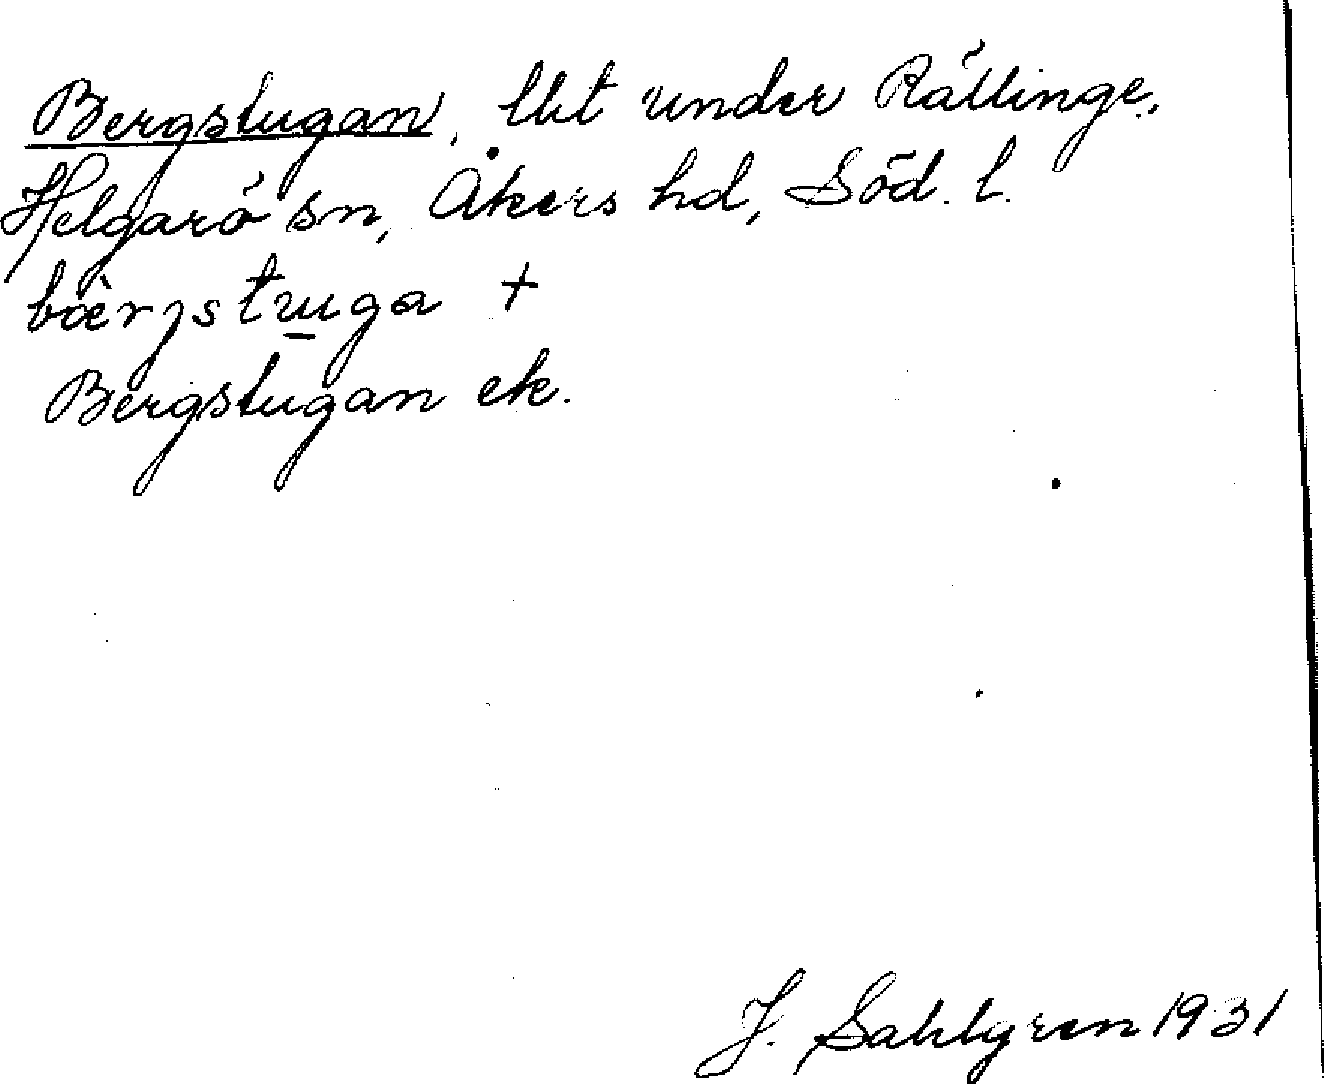 Bergstugan, lht under Rällinge,
Helgarö sn, Åkers hd, Söd. l.
bæ̀rjstuga +
Bergstugan ek.
J. Sahlgren 1931